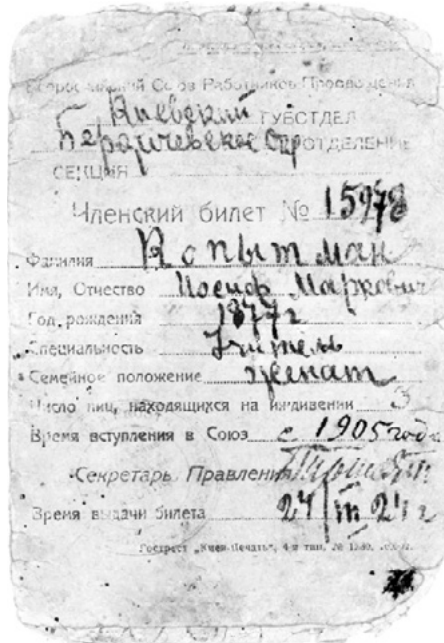 Всероссийский Союз Работников Просвещения
Киевский ГУБОТДЕЛ
Бердичевское Окр ОТДЕЛЕНИЕ
СЕКЦИЯ
Членский билет № 15978
Фамилия Копытман
Имя, Отчество Иосиф Маркович
Год рождения 1877 г
Специальность Учитель
Семейное положение женат
Число лиц, находящихся на иждивении 3
Время вступления в Союз с 1905 года
Секретарь Правления
Время выдачи билета 24/III 24 г